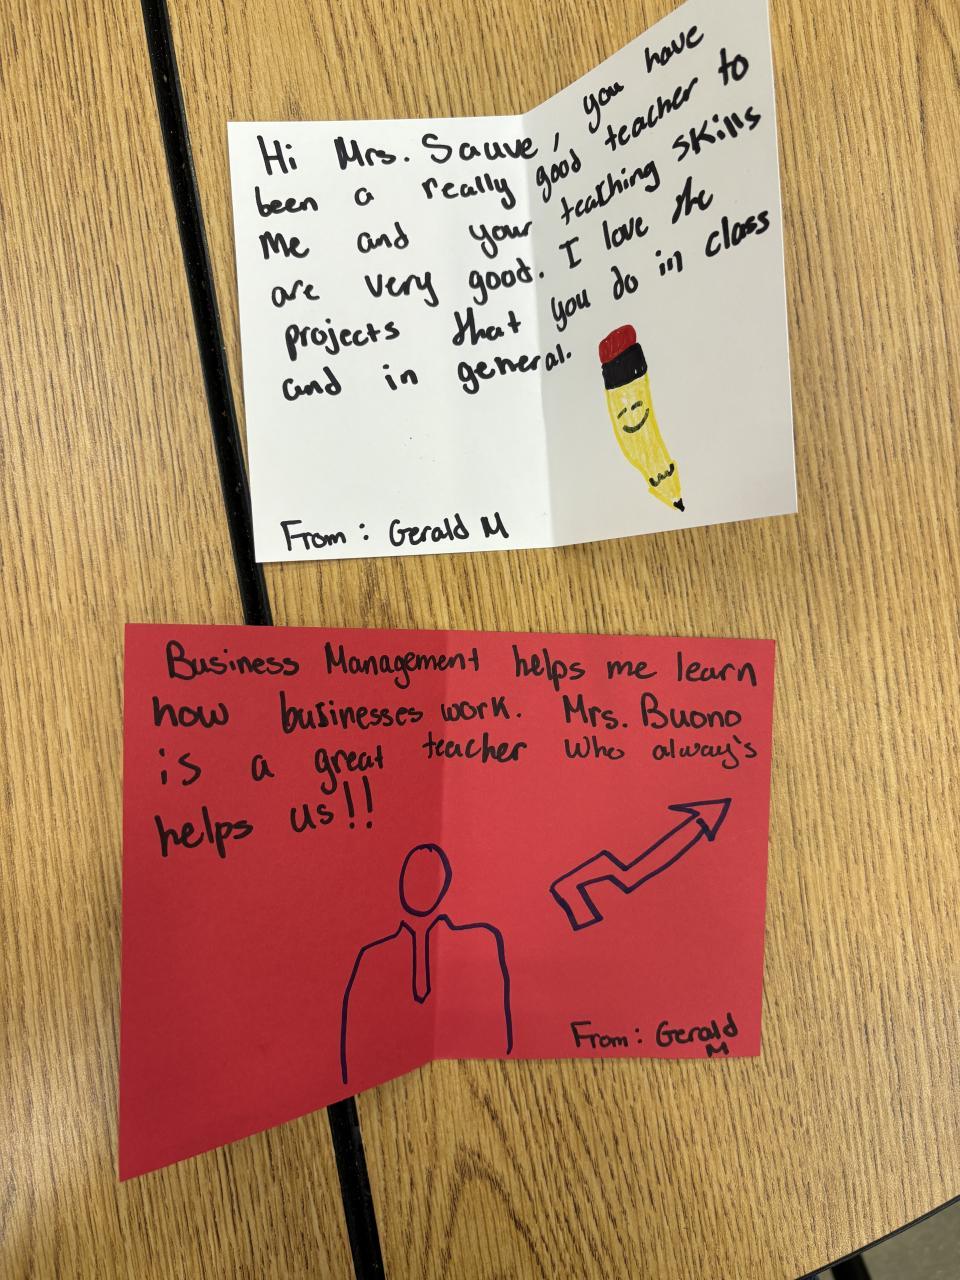 Hi Mrs. Sauve, you have
been a really good teacher to
me and your teaching skills
are very good. I love the
projects that you do in class
and in general.
From: Gerald M
Business Management helps me learn
how businesses work. Mrs. Buono
is a great teacher who always's
helps us!!
From: Gerald
M